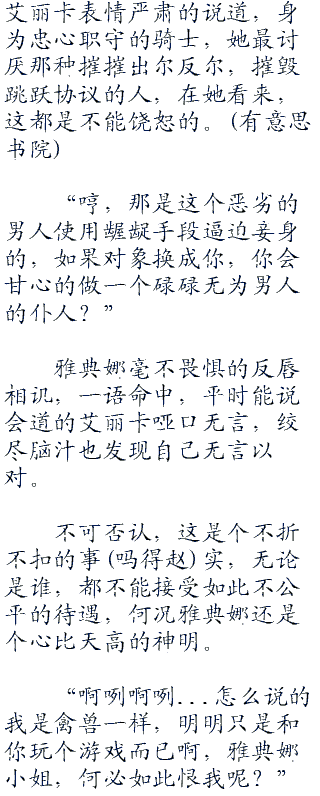 艾丽卡表情严肃的说道，身
为忠心职守的骑士，她最讨
厌那种摧摧出尔反尔，摧毁
跳跃协议的人，在她看来，
这都是不能饶恕的。(有意思
书院)
“哼，那是这个恶劣的
男人使用龌龊手段逼迫妾身
的，如果对象换成你，你会
甘心的做一个碌碌无为男人
的仆人？”
雅典娜毫不畏惧的反唇
相讥，一语命中，平时能说
会道的艾丽卡哑口无言，绞
尽脑汁也发现自己无言以
对。
不可否认，这是个不折
不扣的事(吗得赵)实，无论
是谁，都不能接受如此不公
平的待遇，何况雅典娜还是
个心比天高的神明。
“啊咧啊咧...怎么说的
我是禽兽一样，明明只是和
你玩个游戏而已啊，雅典娜
小姐，何必如此恨我呢？”